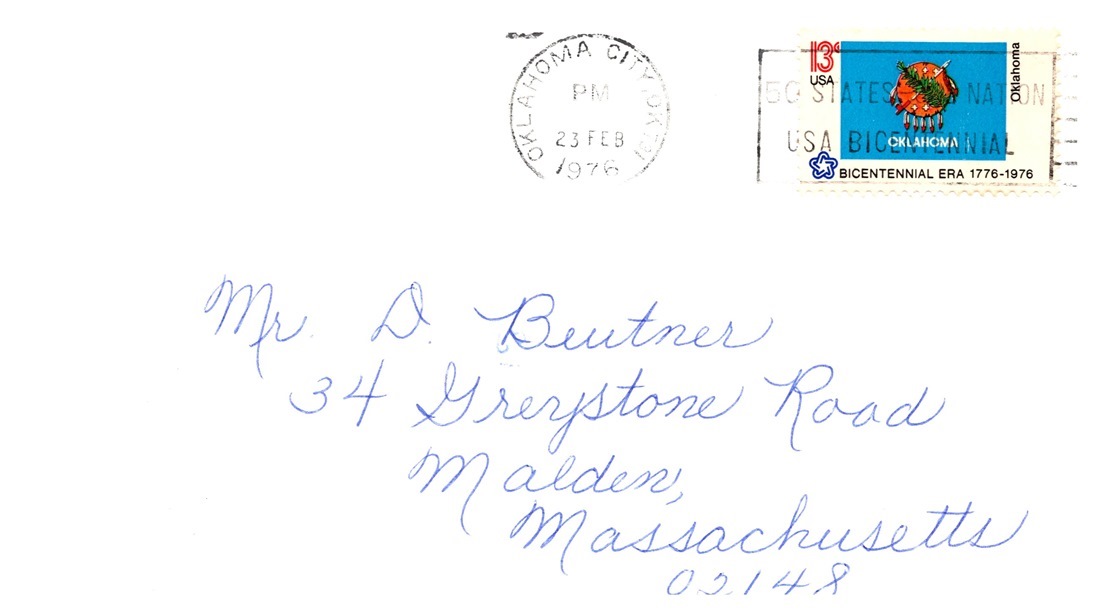 OKLAHOMA CITY OK
PM
23 FEB
1976
13c
USA
Oklahoma
50 STATES NATION
USA BICENTENNIAL
OKLAHOMA
BICENTENNIAL ERA 1776-1976
Mr. D. Beutner
34 Greystone Road
Malden,
Massachusetts
02148